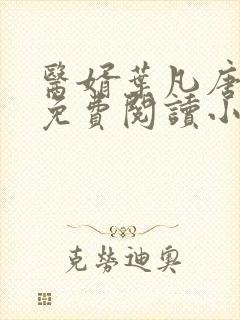 醫婿葉凡唐
免費閱讀小
克勞迪奧